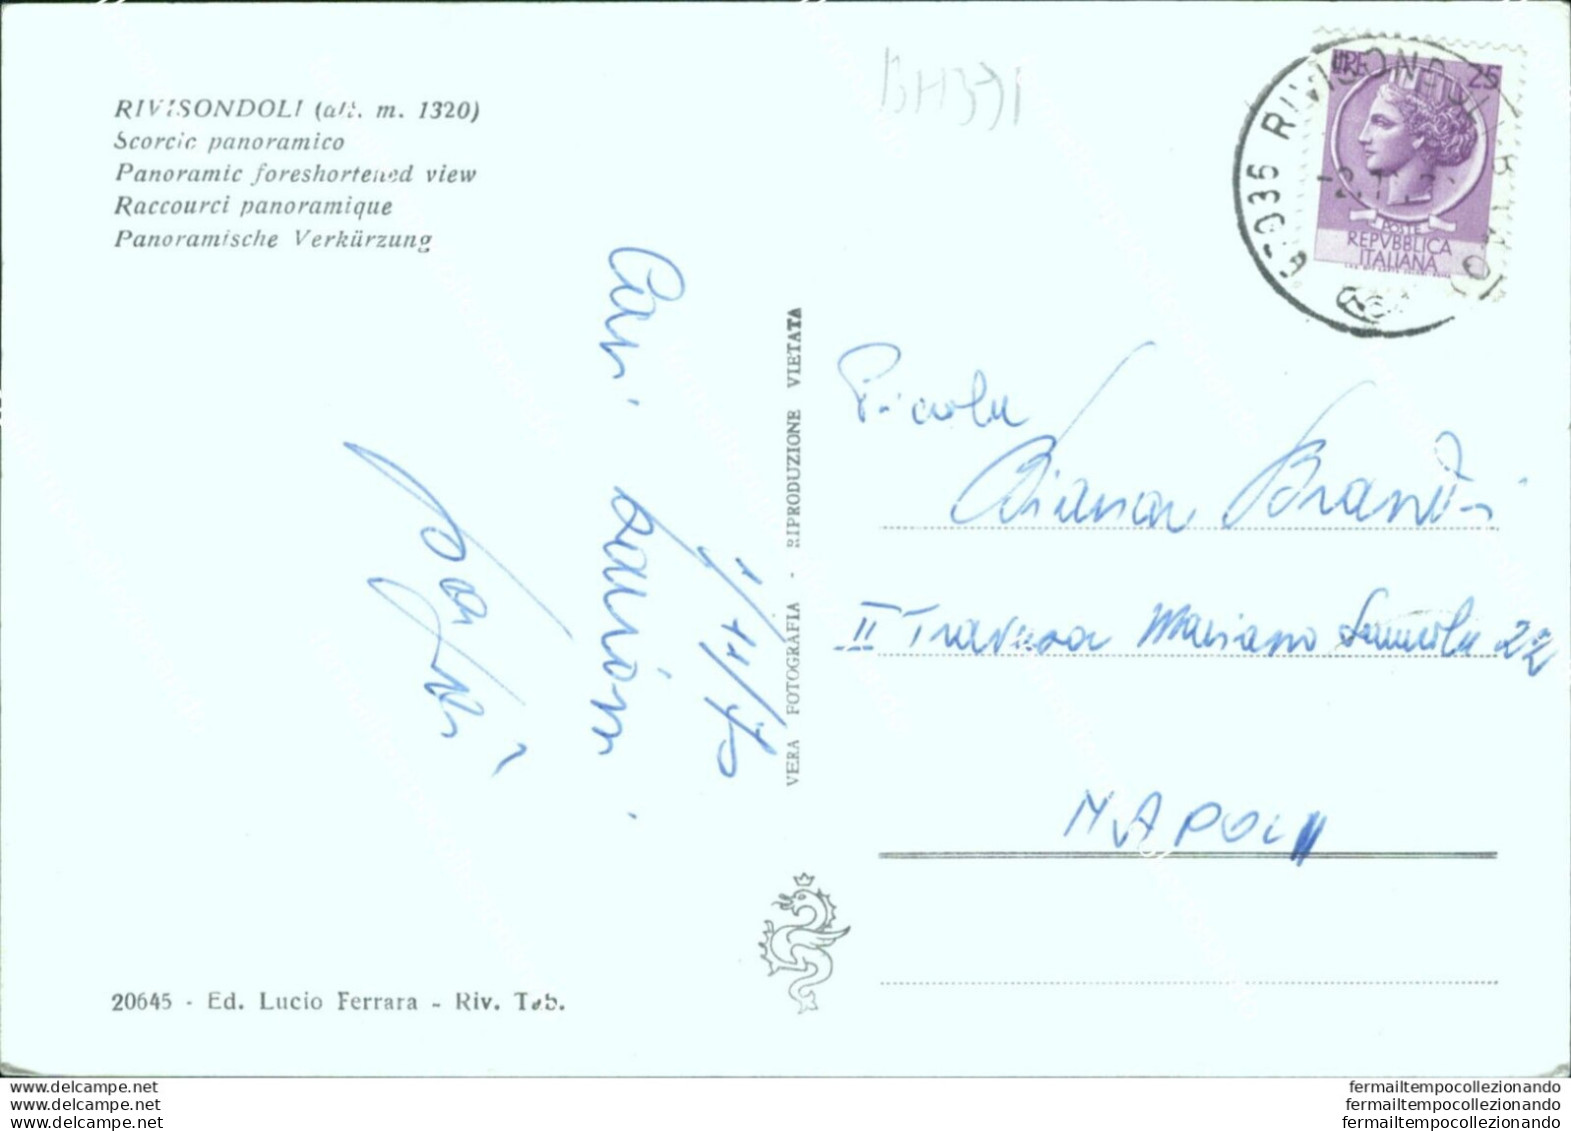 RIVISONDOLI (alt. m. 1320)
Scorcio panoramico
Panoramic foreshortened view
Raccourci panoramique
Panoramische Verkürzung
BH391
LIRE 25
POSTE
REPVBBLICA
ITALIANA
67036 RIVISONDOLI
VERA FOTOGRAFIA - RIPRODUZIONE VIETATA
Cari
Piccola
Diana Brandi
II Traversa Mariano 22
NAPOLI
20645 - Ed. Lucio Ferrara - Riv. Tab.
www.delcampe.net
www.delcampe.net
www.delcampe.net
fermailtempocollezionando
fermailtempocollezionando
fermailtempocollezionando